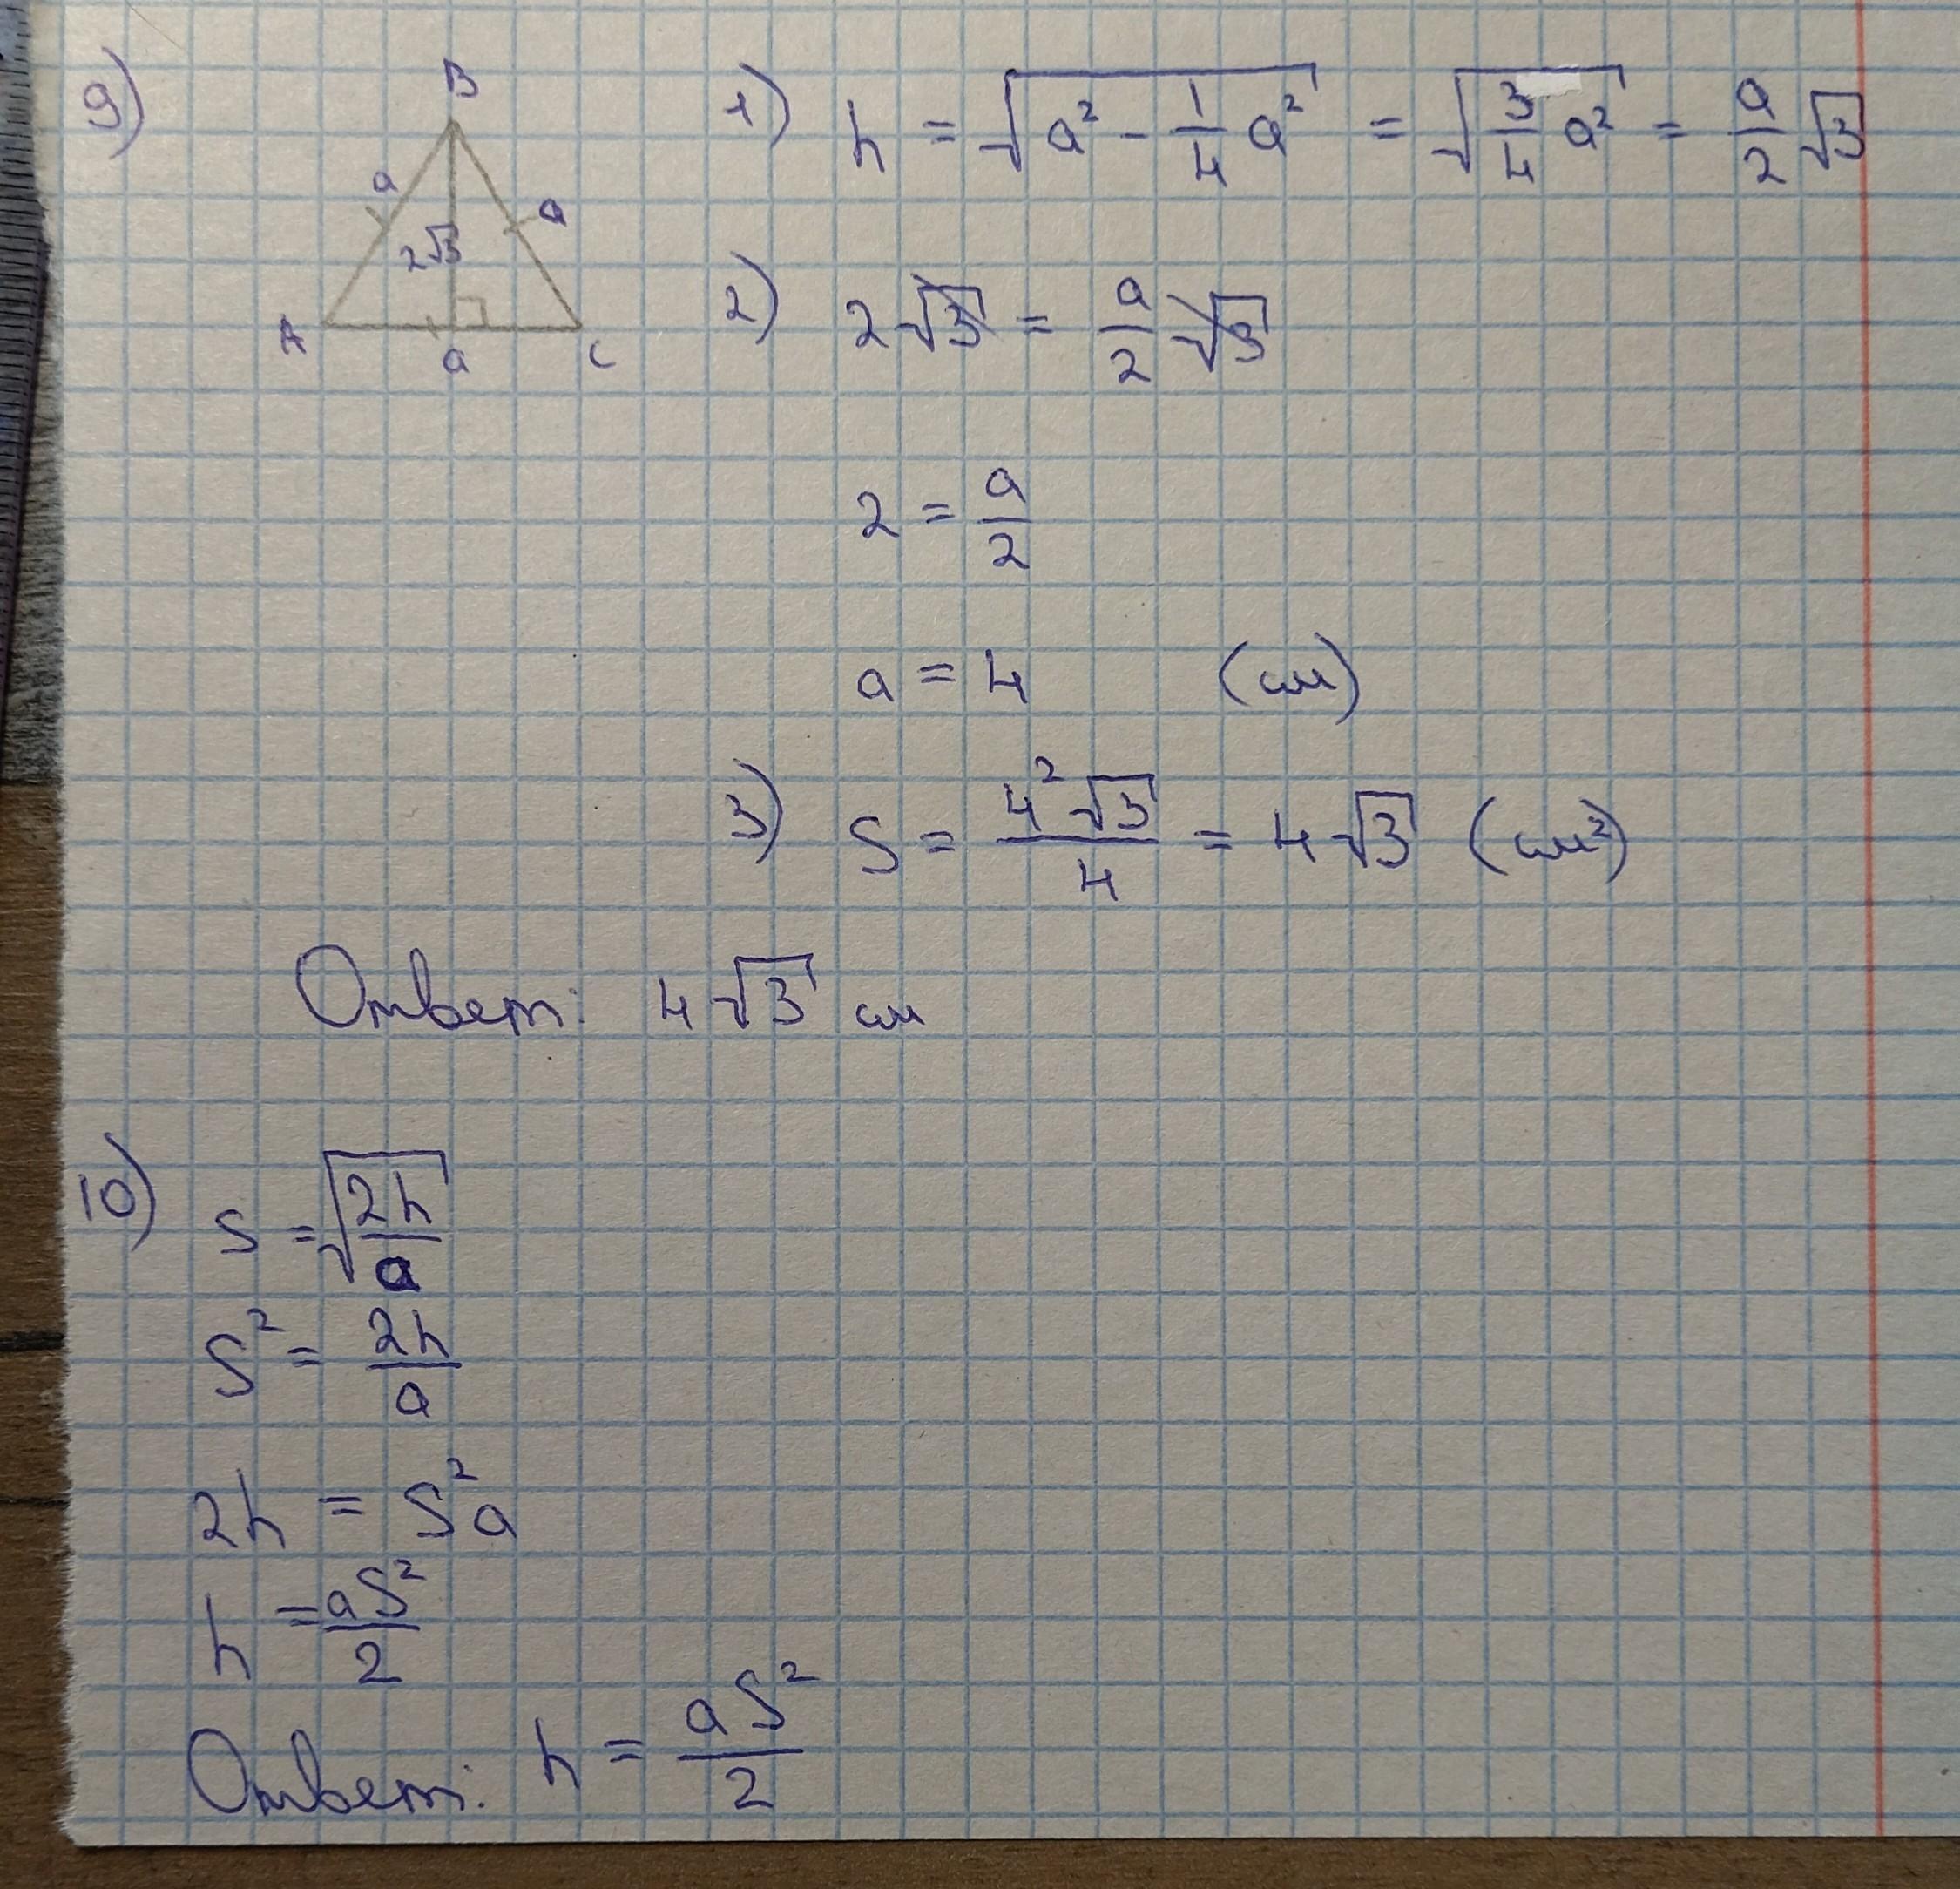 9)
B
a
a
2√3
A
a
C
1) h = √(a² - 1/4 a²) = √(3/4 a²) = a/2 √3
2) 2√3 = a/2 √3
2 = a/2
a = 4 (см)
3) S = 4²√3/4 = 4√3 (см²)
Ответ: 4√3 см
10) S = √(2h/a)
S² = 2h/a
2h = S²a
h = aS²/2
Ответ: h = aS²/2